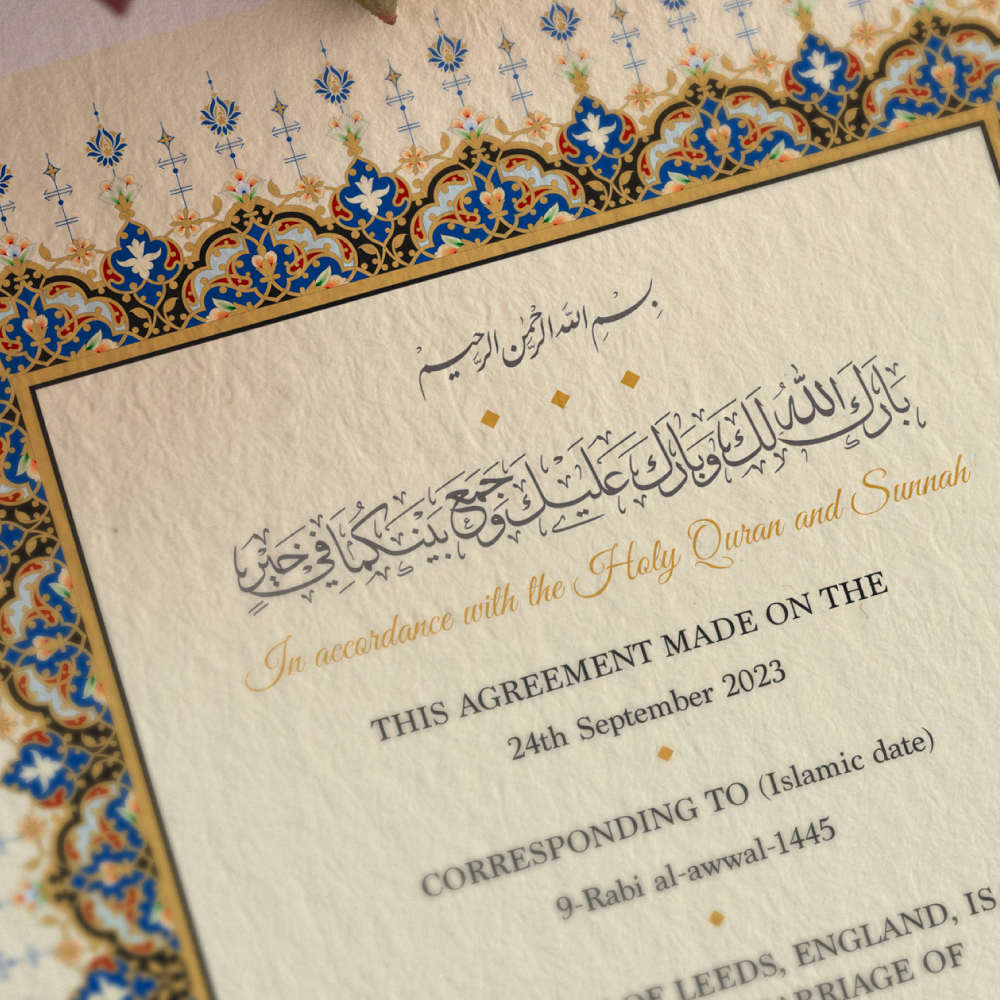 بسم الله الرحمن الرحيم
بارك الله لك وبارك عليك وجمع بينكما في خير
In accordance with the Holy Quran and Sunnah
THIS AGREEMENT MADE ON THE
24th September 2023
CORRESPONDING TO (Islamic date)
9-Rabi al-awwal-1445
OF LEEDS, ENGLAND, IS
MARRIAGE OF